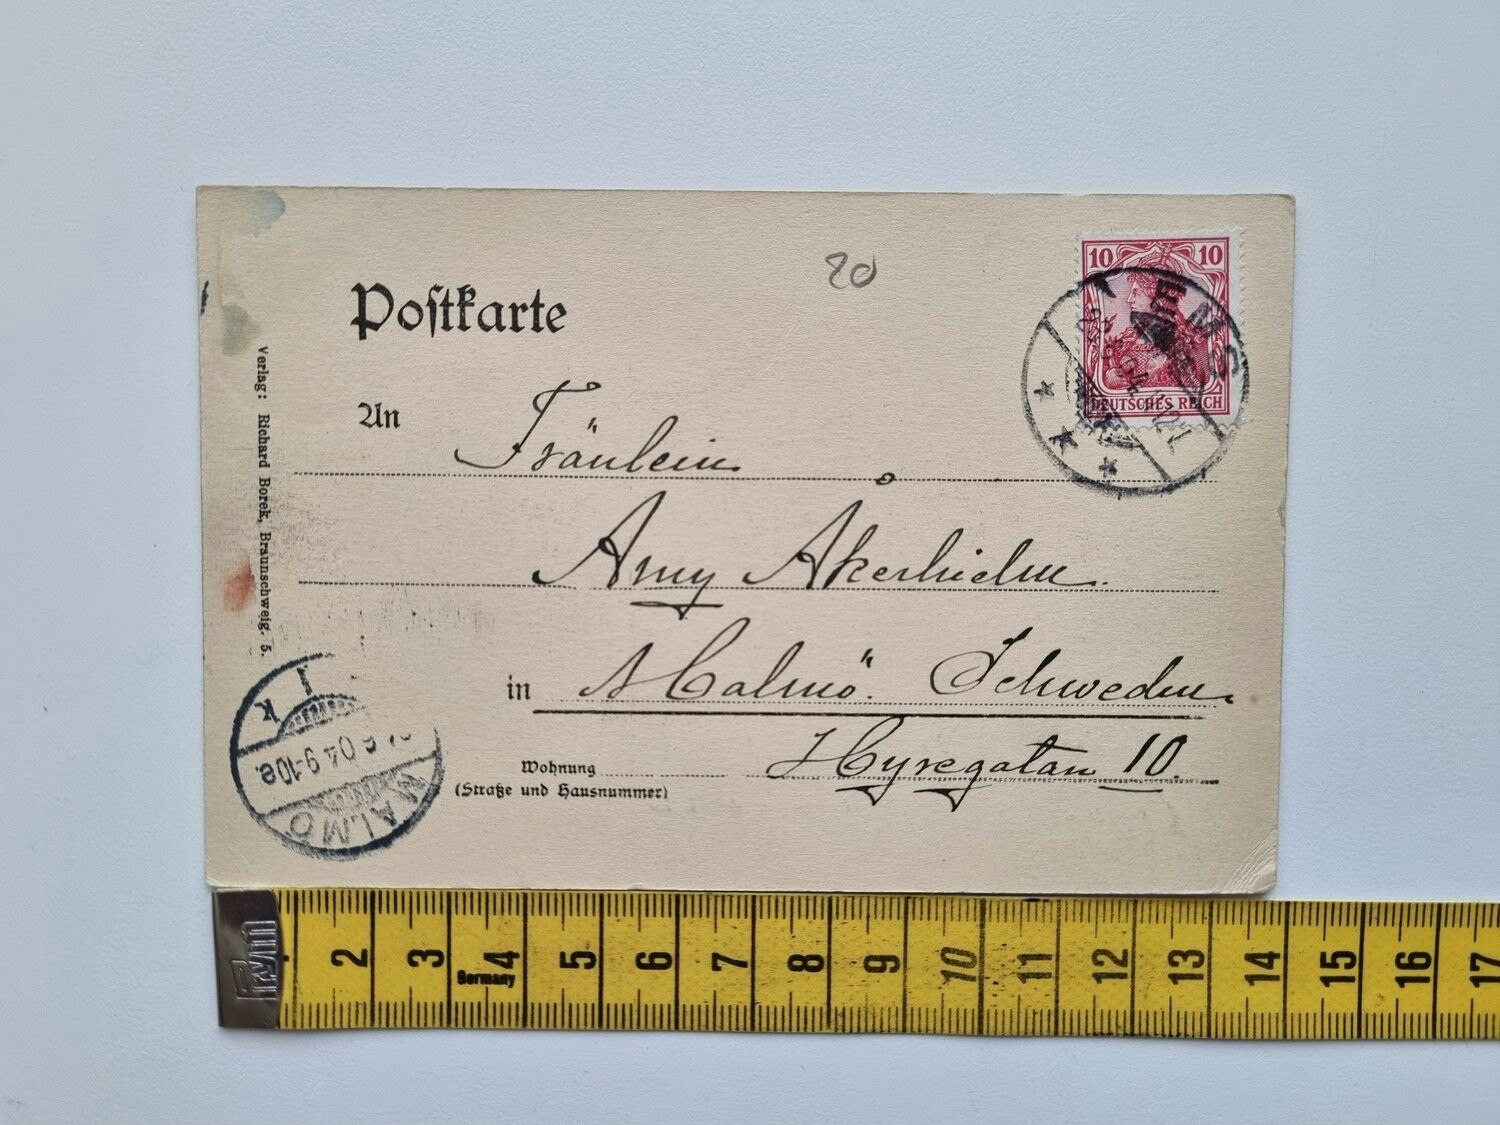 20
10 10
DEUTSCHES REICH
EMS
Postkarte
An
Fräulein
Amy Åkerhielm.
in Malmö. Schweden
Hyregatan 10.
Wohnung
(Straße und Hausnummer)
Verlag: Richard Borek, Braunschweig. 5.
6.04 9-10e.
MALMÖ
Prym
2 3 4 5 6 7 8 9 10 11 12 13 14 15 16 17
Germany